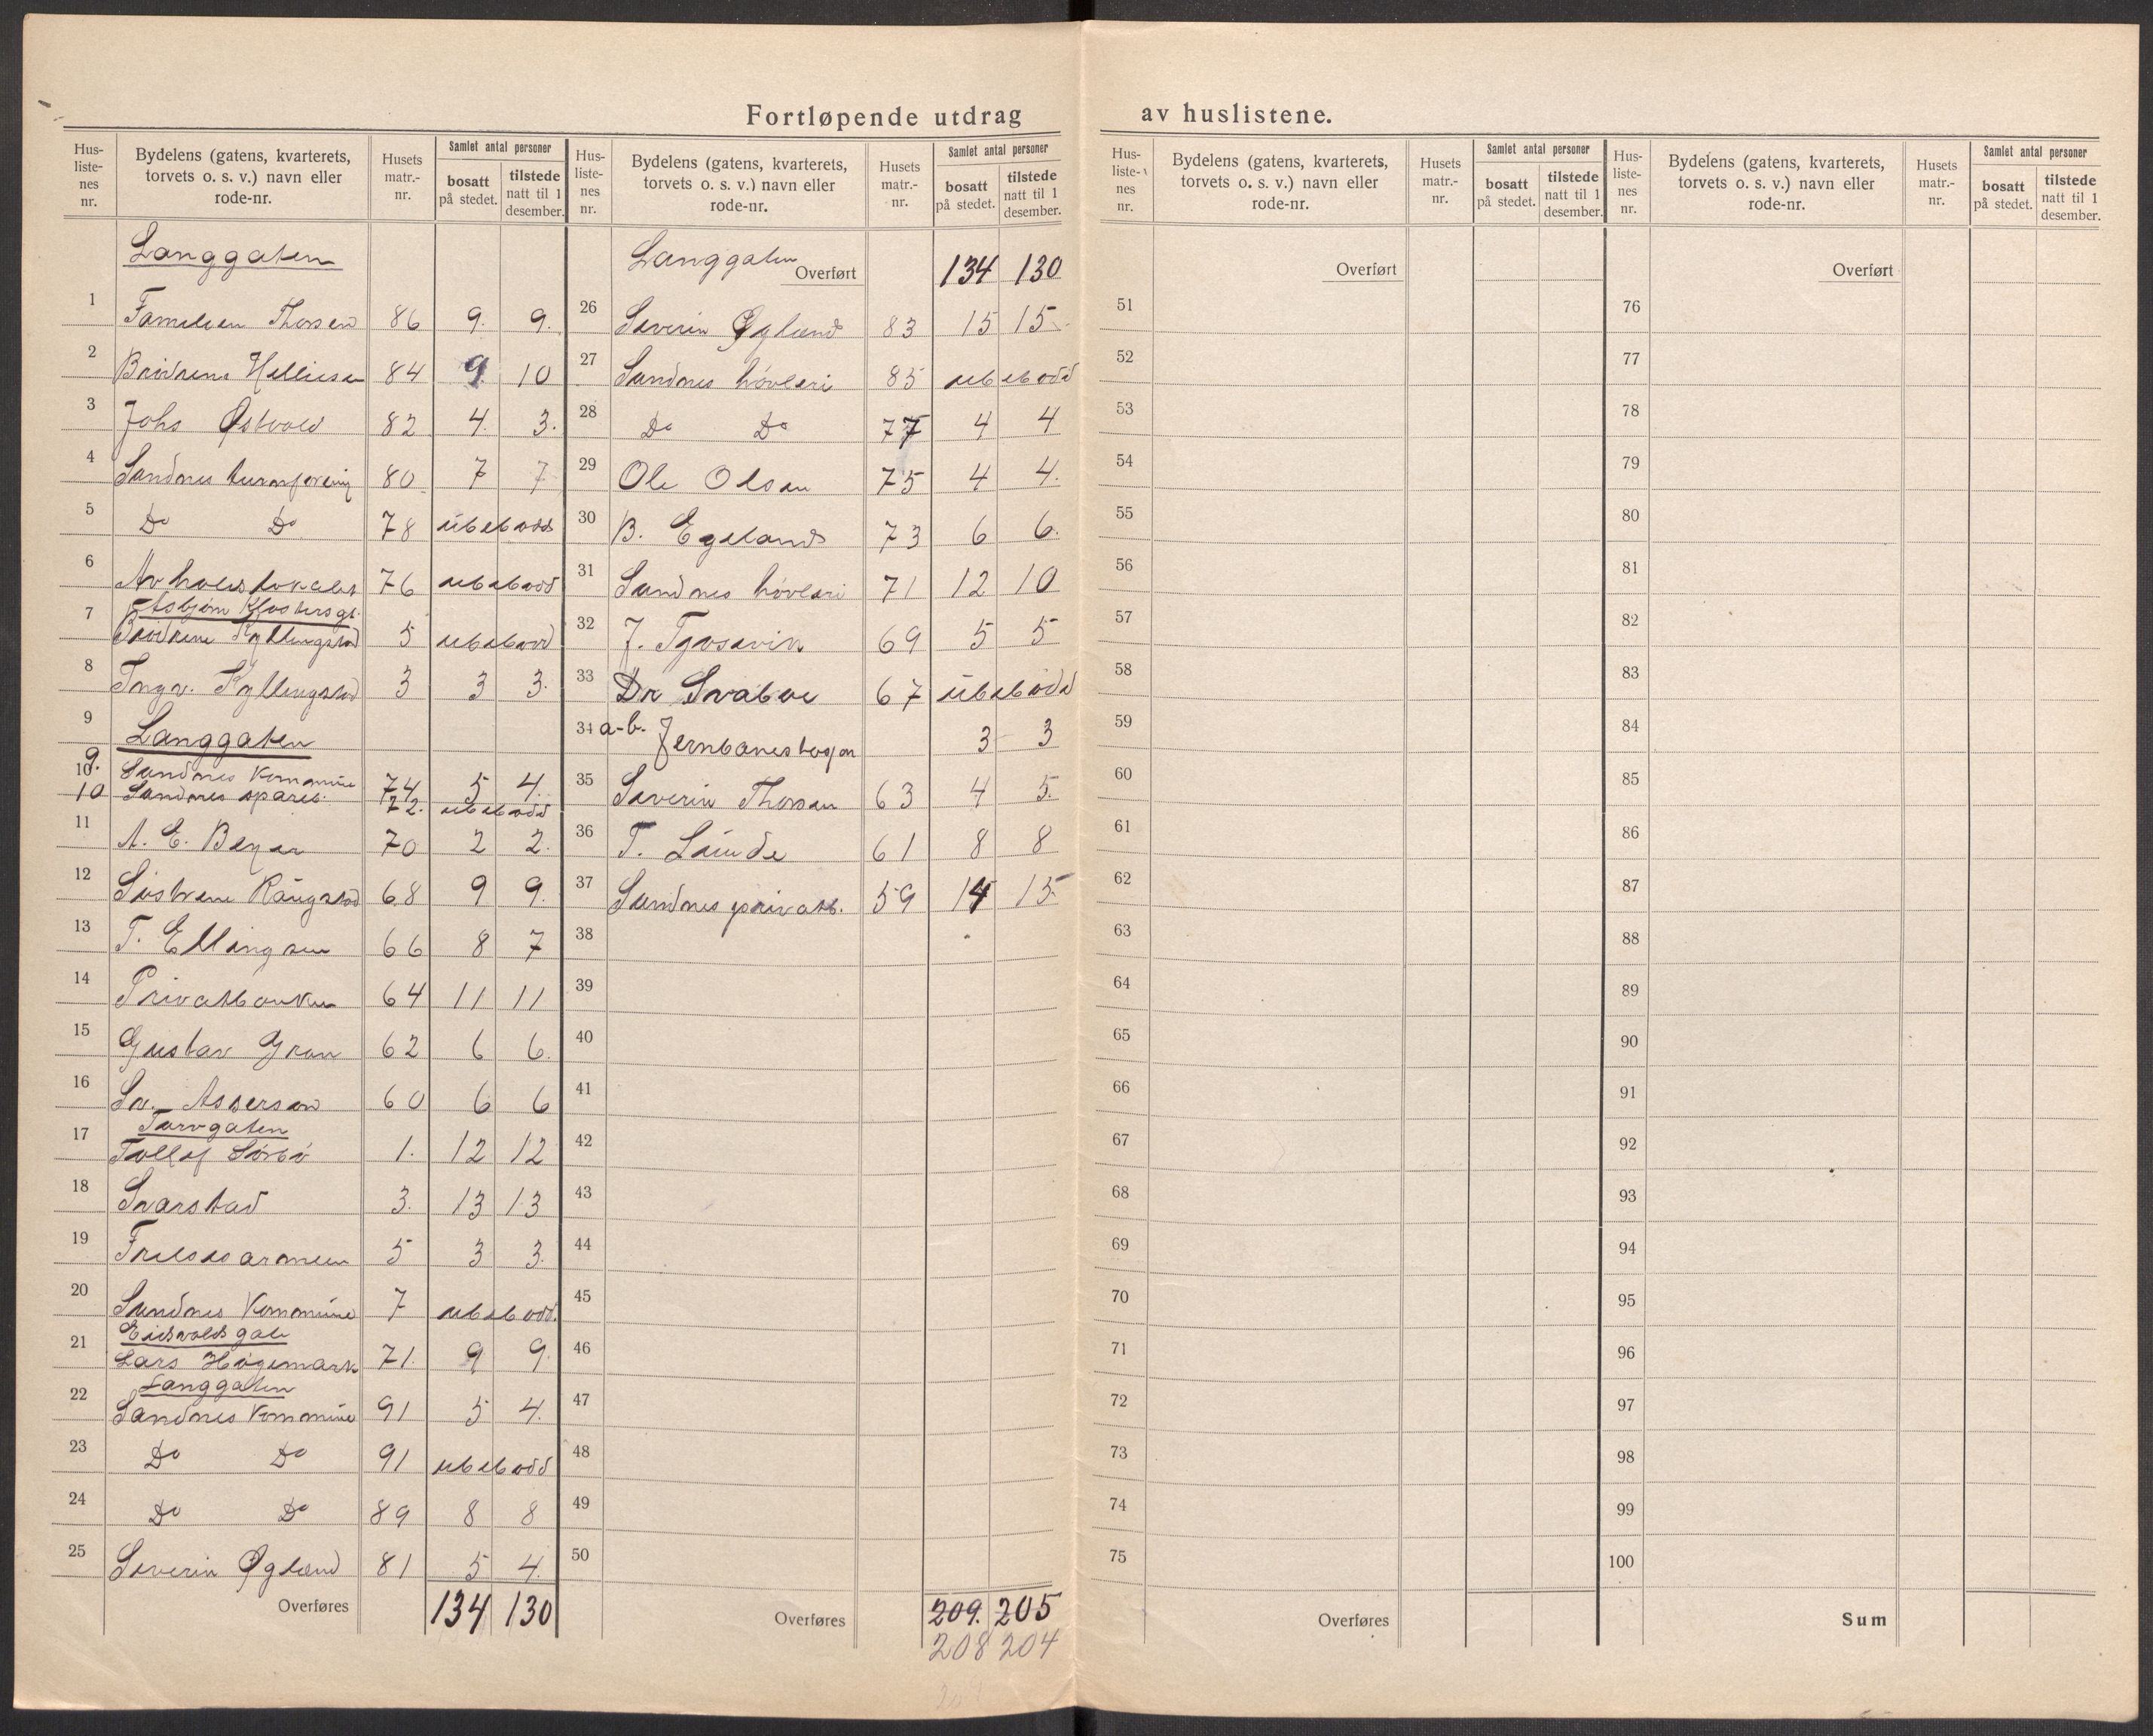 Fortløpende utdrag av huslistene.
Hus-listenes nr. Bydelens (gatens, kvarterets, torvets o. s. v.) navn eller rode-nr. Husets matr.-nr. Samlet antal personer bosatt på stedet. tilstede natt til 1 desember.
Langgaten
1 Familien Thorsen 86 9. 9.
2 Brødrene Helliesen 84 9 10
3 Johs Østvold 82 4. 3.
4 Sandnes turnforening 80 7 7
5 Do Do 78 ubebodd
6 Avholdslokalet 76 ubebodd
Asbjørn Klostersgt.
7 Brødrene Kyllingstad 5 ubebodd
8 Ingv. Kyllingstad 3 3 3.
9 Langgaten
9. Sandnes Kommune 74 5 4.
10 Sandnes spareb. 72. ubebodd
11 A. E. Beyer 70 2 2.
12 Søstrene Raugstad 68 9 9.
13 T. Ellingsen 66 8 7
14 Privatbanken 64 11 11
15 Gustav Gran 62 6 6.
16 Sv. Asserson 60 6 6
Torvgaten
17 Tollef Sørbø 1. 12 12
18 Svarstad 3. 13 13
19 Frelsesarmeen 5 3 3.
20 Sandnes Kommune 7 ubebodd.
Eidsvolds gate
21 Lars Hogemark 71. 9 9.
Langgaten
22 Sandnes Kommune 91 5 4.
23 Do Do 91 ubebodd
24 Do Do 89 8 8
25 Severin Øglænd 81 5 4.
Overføres 134 130
Hus-listenes nr. Bydelens (gatens, kvarterets, torvets o. s. v.) navn eller rode-nr. Husets matr.-nr. Samlet antal personer bosatt på stedet. tilstede natt til 1 desember.
Langgaten Overført 134 130
26 Severin Øglænd 83 15 15
27 Sandnes høvleri 85 ubebodd
28 Do Do 77 4 4
29 Ole Olsen 75 4 4.
30 B. Egeland 73 6 6.
31 Sandnes høvleri 71 12 10
32 J. 69 5 5
33 Dr Svaboe 67 ubebodd
34 a-b. Jernbanestasjon 3 3
35 Severin Thorsen 63 4 5.
36 T. Lunde 61 8 8
37 Sandnes privatb. 59 14 15
38
39
40
41
42
43
44
45
46
47
48
49
50
Overføres 209. 205
208 204
Hus-listenes nr. Bydelens (gatens, kvarterets, torvets o. s. v.) navn eller rode-nr. Husets matr.-nr. Samlet antal personer bosatt på stedet. tilstede natt til 1 desember.
Overført
51
52
53
54
55
56
57
58
59
60
61
62
63
64
65
66
67
68
69
70
71
72
73
74
75
Overføres
Hus-listenes nr. Bydelens (gatens, kvarterets, torvets o. s. v.) navn eller rode-nr. Husets matr.-nr. Samlet antal personer bosatt på stedet. tilstede natt til 1 desember.
Overført
76
77
78
79
80
81
82
83
84
85
86
87
88
89
90
91
92
93
94
95
96
97
98
99
100
Sum